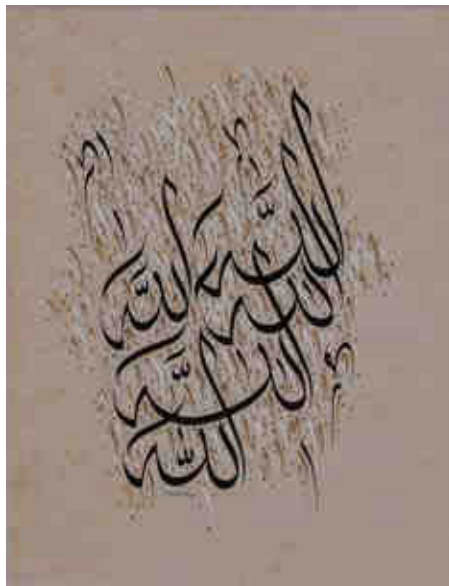 الله
الله
الله
الله
الله